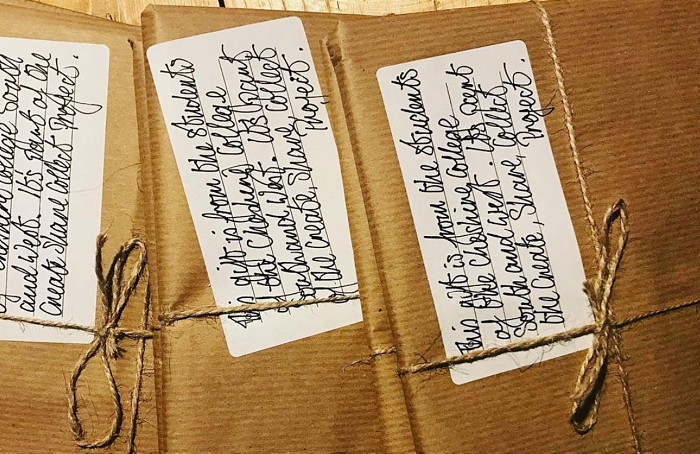 of Cheshire College South
and West. It's part of the
Create Share Collect Project.
This gift is from the Students
of the Cheshire College
South and West. Its part
of the Create, Share, Collect
Project.
This gift is from the Students
of the Cheshire College
South and West. Its part of
the Create, Share, Collect
Project.